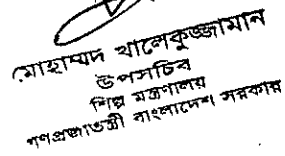 মোহাম্মদ খালেকুজ্জামান
উপসচিব
শিল্প মন্ত্রণালয়
গণপ্রজাতন্ত্রী বাংলাদেশ সরকার